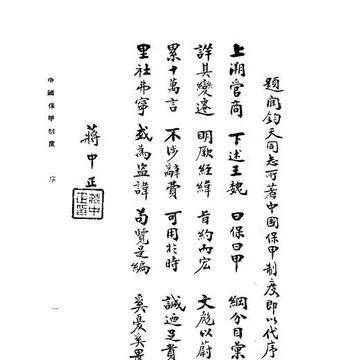 題聞鈞天同志所著中國保甲制度即以代序
上溯管商 下述王魏 曰保曰甲 綱分目彙
詳其變遷 明厥經緯 旨約而宏 文彪以蔚
累十萬言 不涉辭費 可用於時 誠迺足貴
里社弗寧 或為盜諱 苟覽是編 奚憂奚畏
蔣中正
蔣中正印
中國保甲制度 序 一